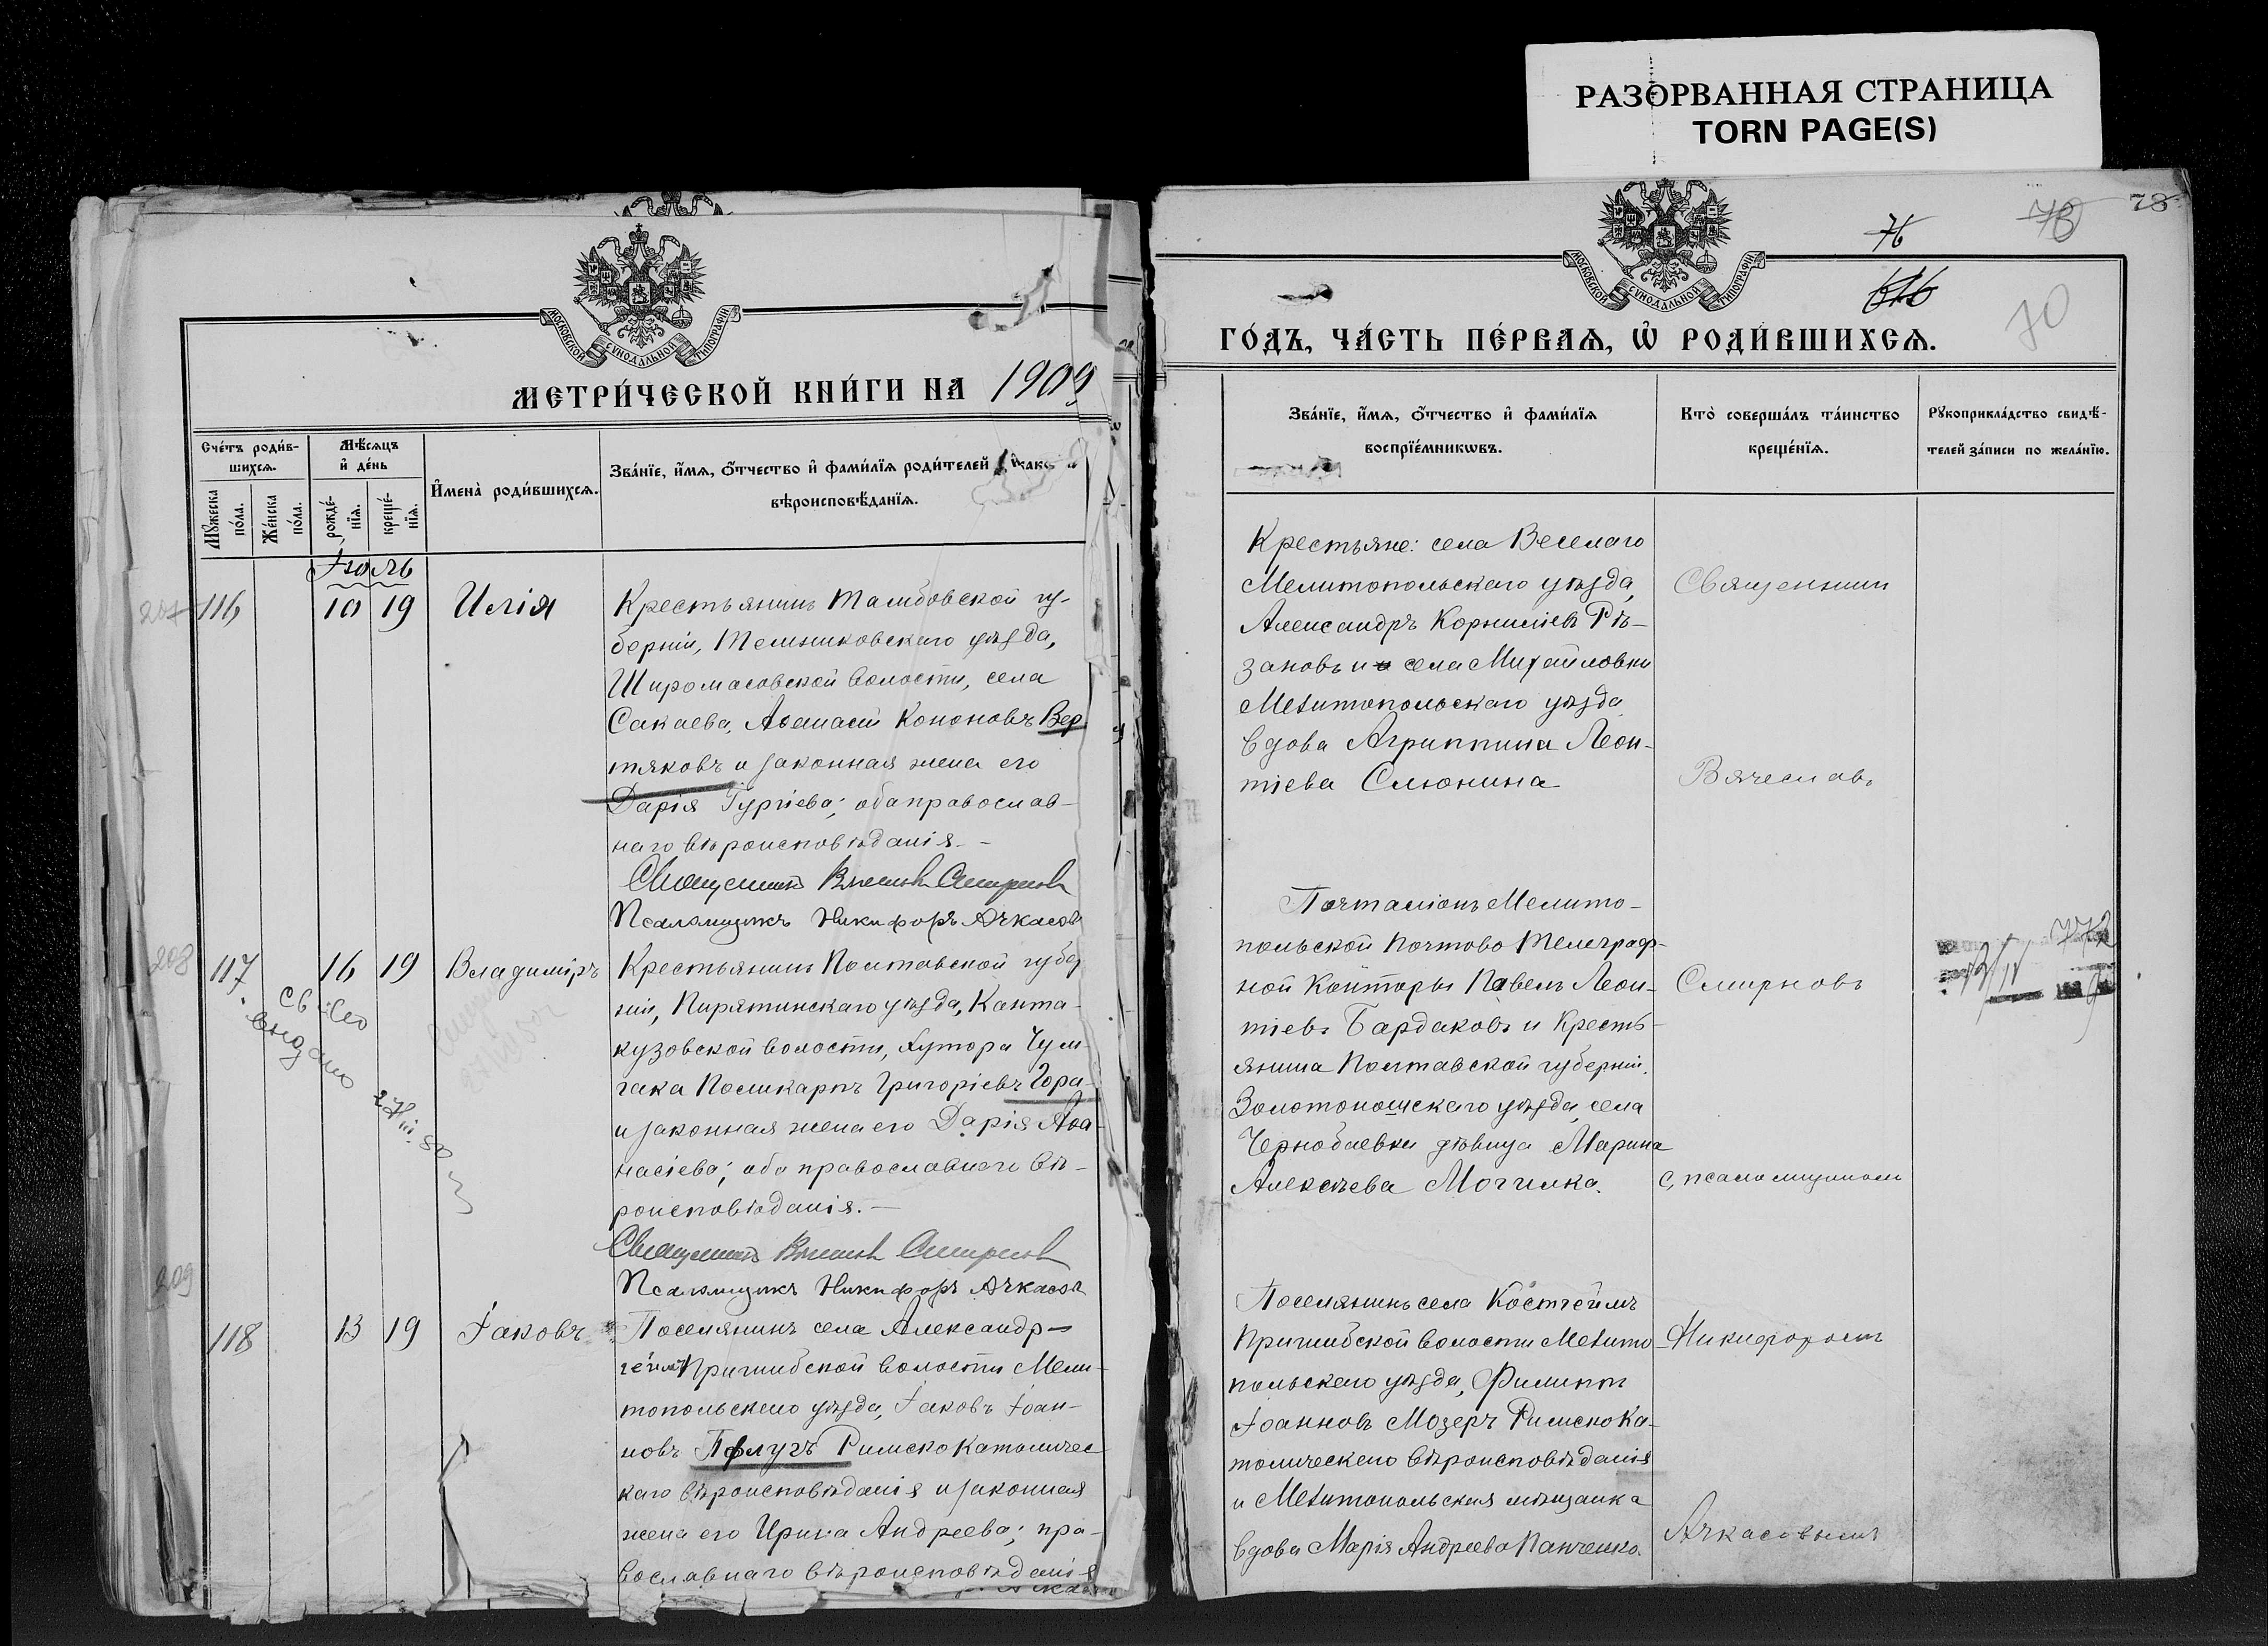 РАЗОРВАННАЯ СТРАНИЦА
TORN PAGE(S)
МОСКОВСКОЙ СѴНОДАЛЬНОЙ ТИПОГРАФІИ
МЕТРИ́ЧЕСКОЙ КНИ́ГИ НА 1909
Сче́тъ роди́в-
шихсѧ.
Мѣ́сѧцъ
и҆ де́нь
И҆мена̀ роди́вшихсѧ.
Зва́нїе, и҆́мѧ, ѻ҆́тчество и҆ фами́лїѧ роди́телей
вѣроисповѣ́данїѧ.
Мꙋжеска по́ла.
Же́нска по́ла.
рожде́-нїѧ.
креще́-нїѧ.
Іюль
207 116 10 19 Илія
Крестьянинъ Тамбовской гу-
берніи, Темниковскаго уѣзда,
Широмасовской волости, села
Сакаева, Аѳанасій Кононовъ Вер-
тяковъ и законная жена его
Дарія Гургіева; оба православ-
наго вѣроисповѣданія. –
Священникъ Вячеславъ Смирновъ
Псаломщикъ Никифоръ Ачкасовъ
208 117 16 19 Владиміръ
Крестьянинъ Полтавской губер
ніи, Пирятинскаго уѣзда, Канта-
кузовской волости, хутора Чум-
гака Поликарпъ Григоріевъ Гора
и законная жена его Дарія Аѳа-
насіева; оба православнаго вѣ-
роисповѣданія. –
св-во
выдано
Священникъ Вячеславъ Смирновъ
Псаломщикъ Никифоръ Ачкасовъ
209
118 13 19 Іаковъ
Поселянинъ села Александр-
геймъ Пришибской волости Мели-
топольскаго уѣзда, Іаковъ Іоан-
новъ Пфлугъ Римско Католичес-
каго вѣроисповѣданія и законная
жена его Ирина Андреева; пра-
вославнаго вѣроисповѣданія
76 78 78
70
МОСКОВСКОЙ СѴНОДАЛЬНОЙ ТИПОГРАФІИ
ГО́ДЪ, ЧА́СТЬ ПЕ́РВАѦ, Ѡ҆ РОДИ́ВШИХСѦ.
Зва́нїе, и҆́мѧ, ѻ҆́тчество и҆ фами́лїѧ
воспрїе́мникѡвъ.
Кто̀ соверша́лъ та́инство
креще́нїѧ.
Рꙋкоприкла́дство свидѣ́-
телей за́писи по жела́нїю.
Крестьяне: села Веселаго
Мелитопольскаго уѣзда,
Александръ Корниліевъ Рѣ-
зановъ и села Михайловки
Мелитопольскаго уѣзда
вдова Агриппина Леон-
тіева Слюнина
Священникъ
Вячеславъ
Почталіонъ Мелито-
польской Почтово Телеграф-
ной Конторы Павелъ Леон-
тіевъ Бардаковъ и Кресть-
янина Полтавской губерніи,
Золотоношскаго уѣзда, села
Чернобаевки дѣвица Марина
Алексѣева Могилка.
Смирновъ
с, псаломщикомъ
Поселянинъ села Костгеймъ
Пришибской волости Мелито-
польскаго уѣзда, Филиппъ
Іоанновъ Мозеръ Римско Ка-
толическаго вѣроисповѣданія
и Мелитопольская мѣщанка
вдова Марія Андреева Панченко.
Никифоромъ
Ачкасовымъ